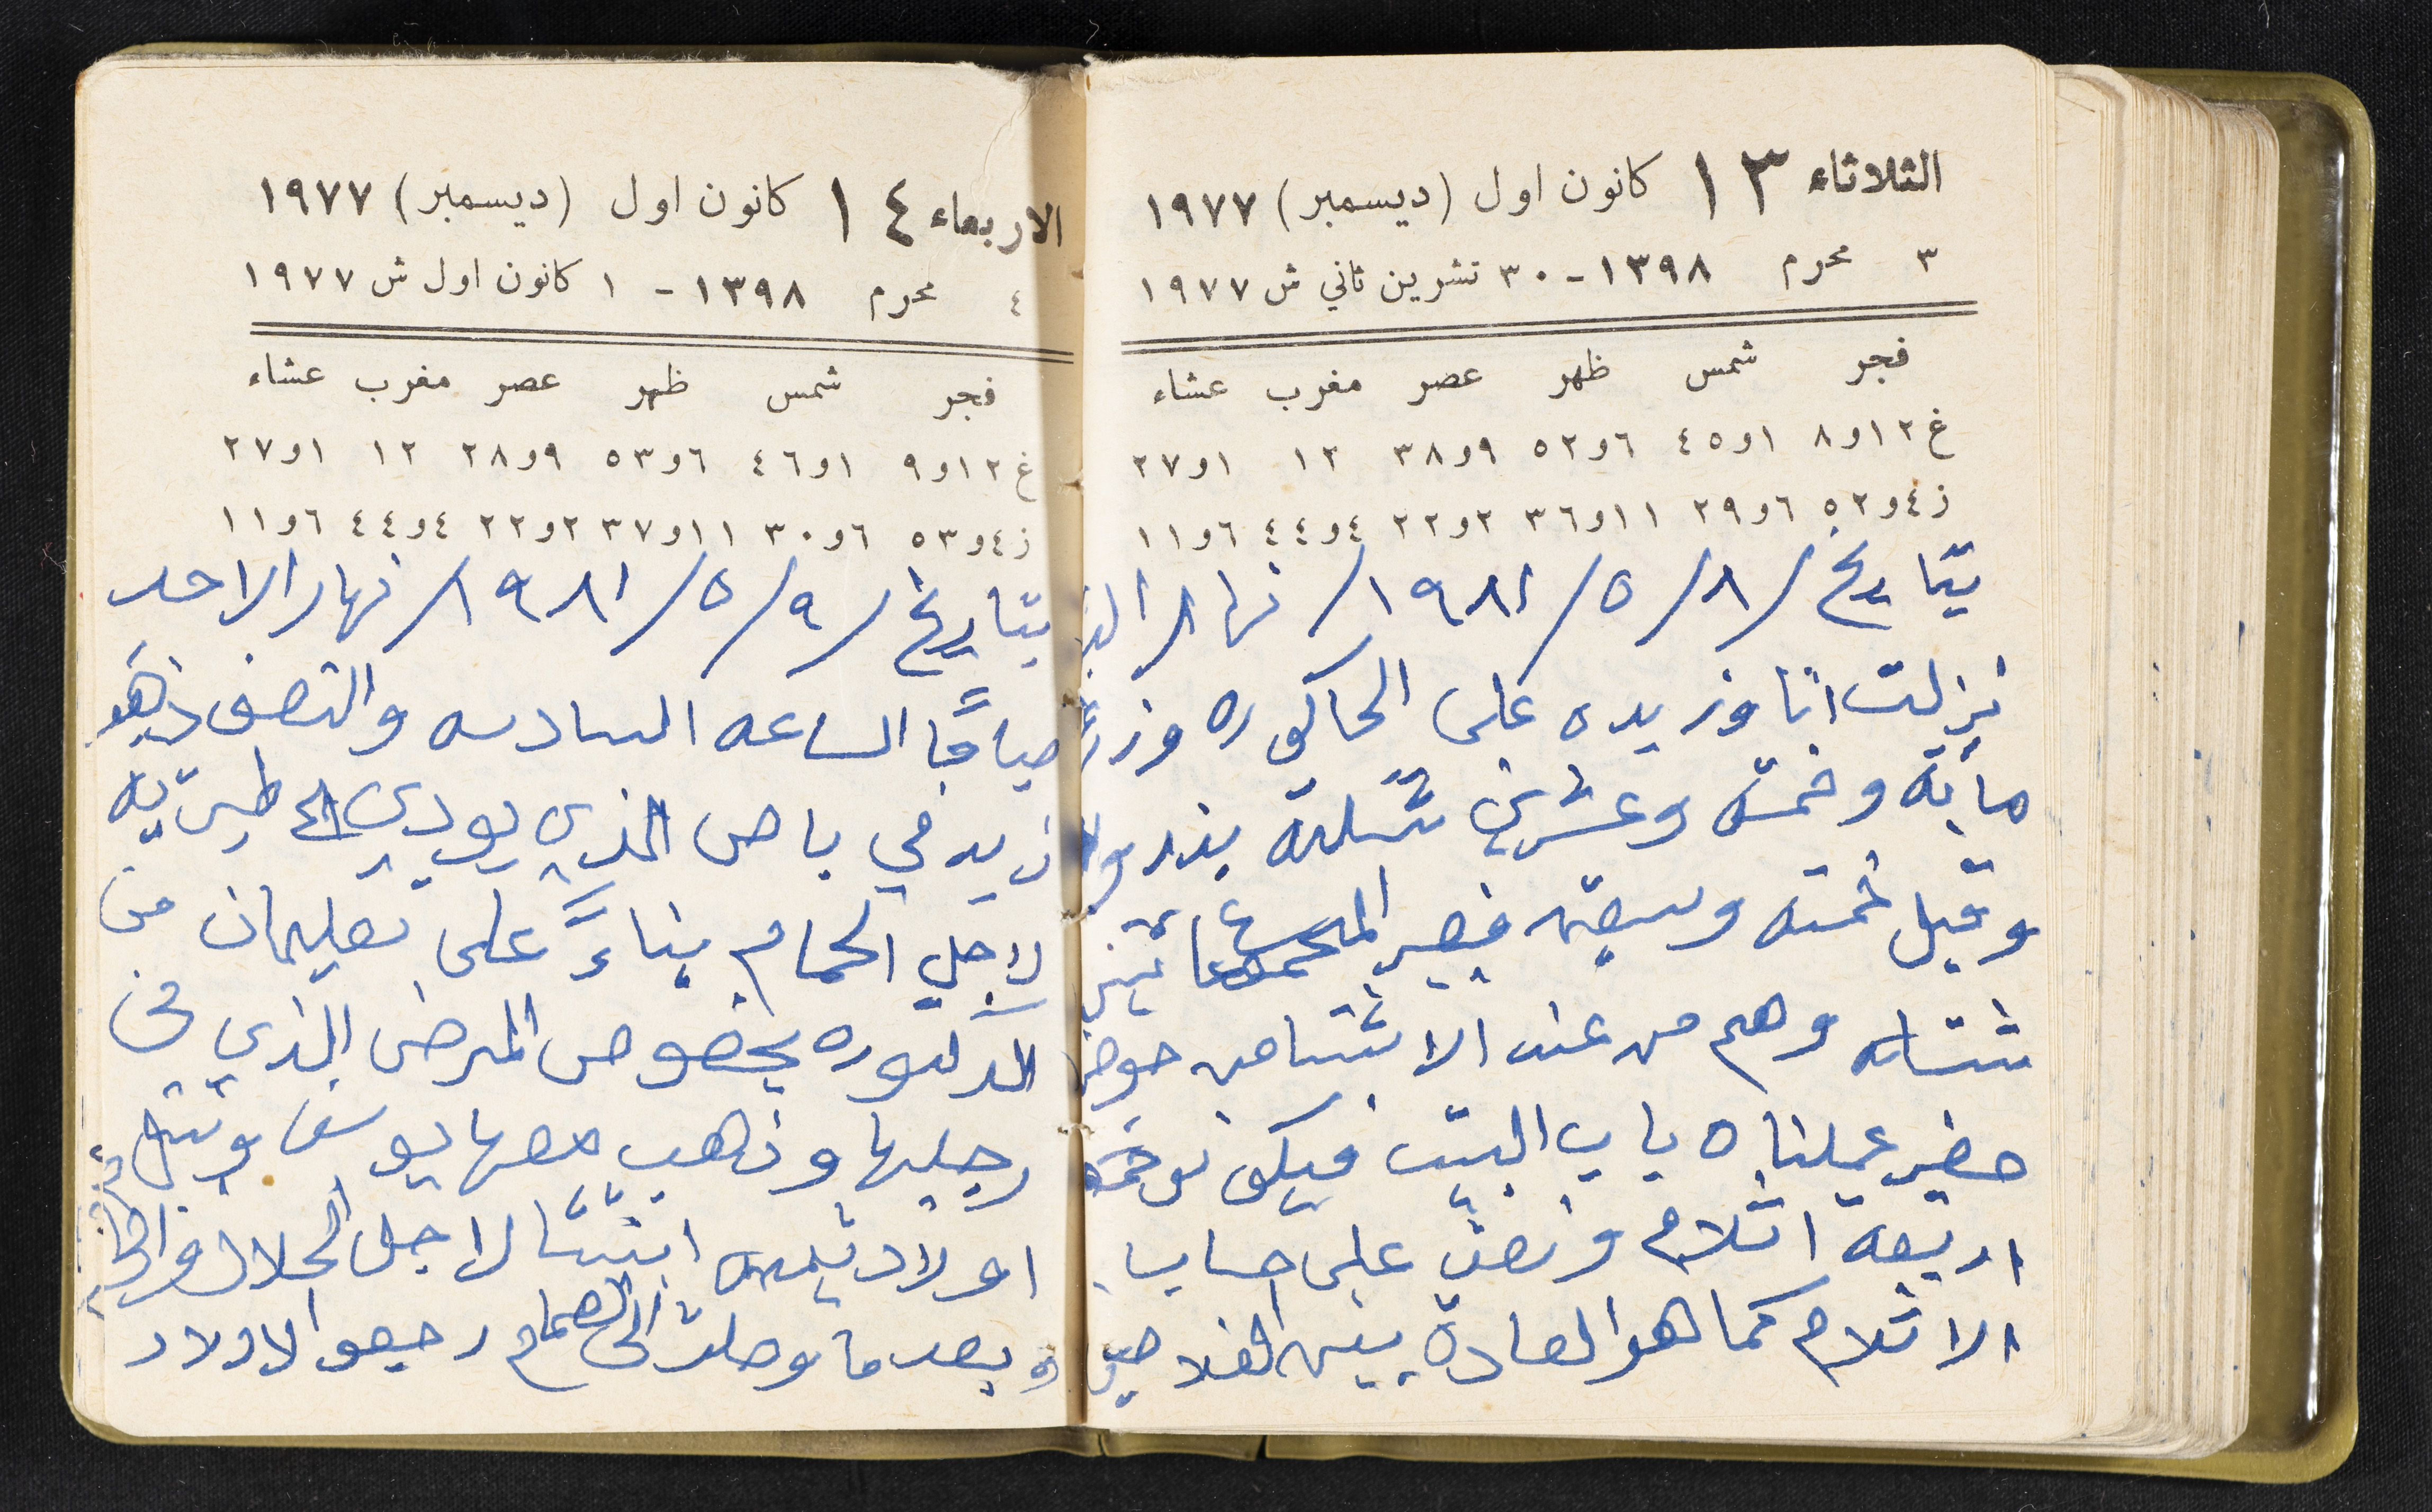 الثلاثاء ١٣ كانون اول (ديسمبر) ١٩٧٧
٣ محرم ١٣٩٨ - ٣٠ تشرين ثاني ش ١٩٧٧
فجر شمس ظهر عصر مغرب عشاء
غ ١٢و٨ ١و٤٥ ٦و٥٢ ٩و٣٨ ١٢ ١و٢٧
ز ٤و٥٢ ٦و٢٩ ١١و٣٦ ٢و٢٢ ٤و٤٤ ٦و١١
بتاريخ /٨/٥/١٩٨١/ نهار
نزلت انا وزيده على الحاكوره
ماية وخمسه وعشرين شتله بندوا
وقبل خمسه وسبعه فيصير المجموع
شتله وهم من عند الابتسام
حضير عملناه باب البيت فيكون
اربعة اتلام ونصف على حساب
الاتلام كما هو العادة بين الفلاحين
الاربعاء ١٤ كانون اول (ديسمبر) ١٩٧٧
٤ محرم ١٣٩٨ - ١ كانون اول ش ١٩٧٧
فجر شمس ظهر عصر مغرب عشاء
غ ١٢و٩ ١و٤٦ ٦و٥٣ ٩و٣٨ ١٢ ١و٢٧
ز ٤و٥٣ ٦و٣٠ ١١و٣٧ ٢و٢٢ ٤و٤٤ ٦و١١
بتاريخ /٩/٥/١٩٨١/ نهار الاحد
صباحًا الساعه السادسه والنصف ذهبو
زيد في باص الذي يودي الى طبريه
لاجل الحمام بناءً على تعليمات من
الدكتوره بخصوص المرض الذي في
رجليها وذهب معها يوسف
اولاد ابنتنا لاجل الحلال
وبعد ما وصلت الى الحمام رجعو الاولاد